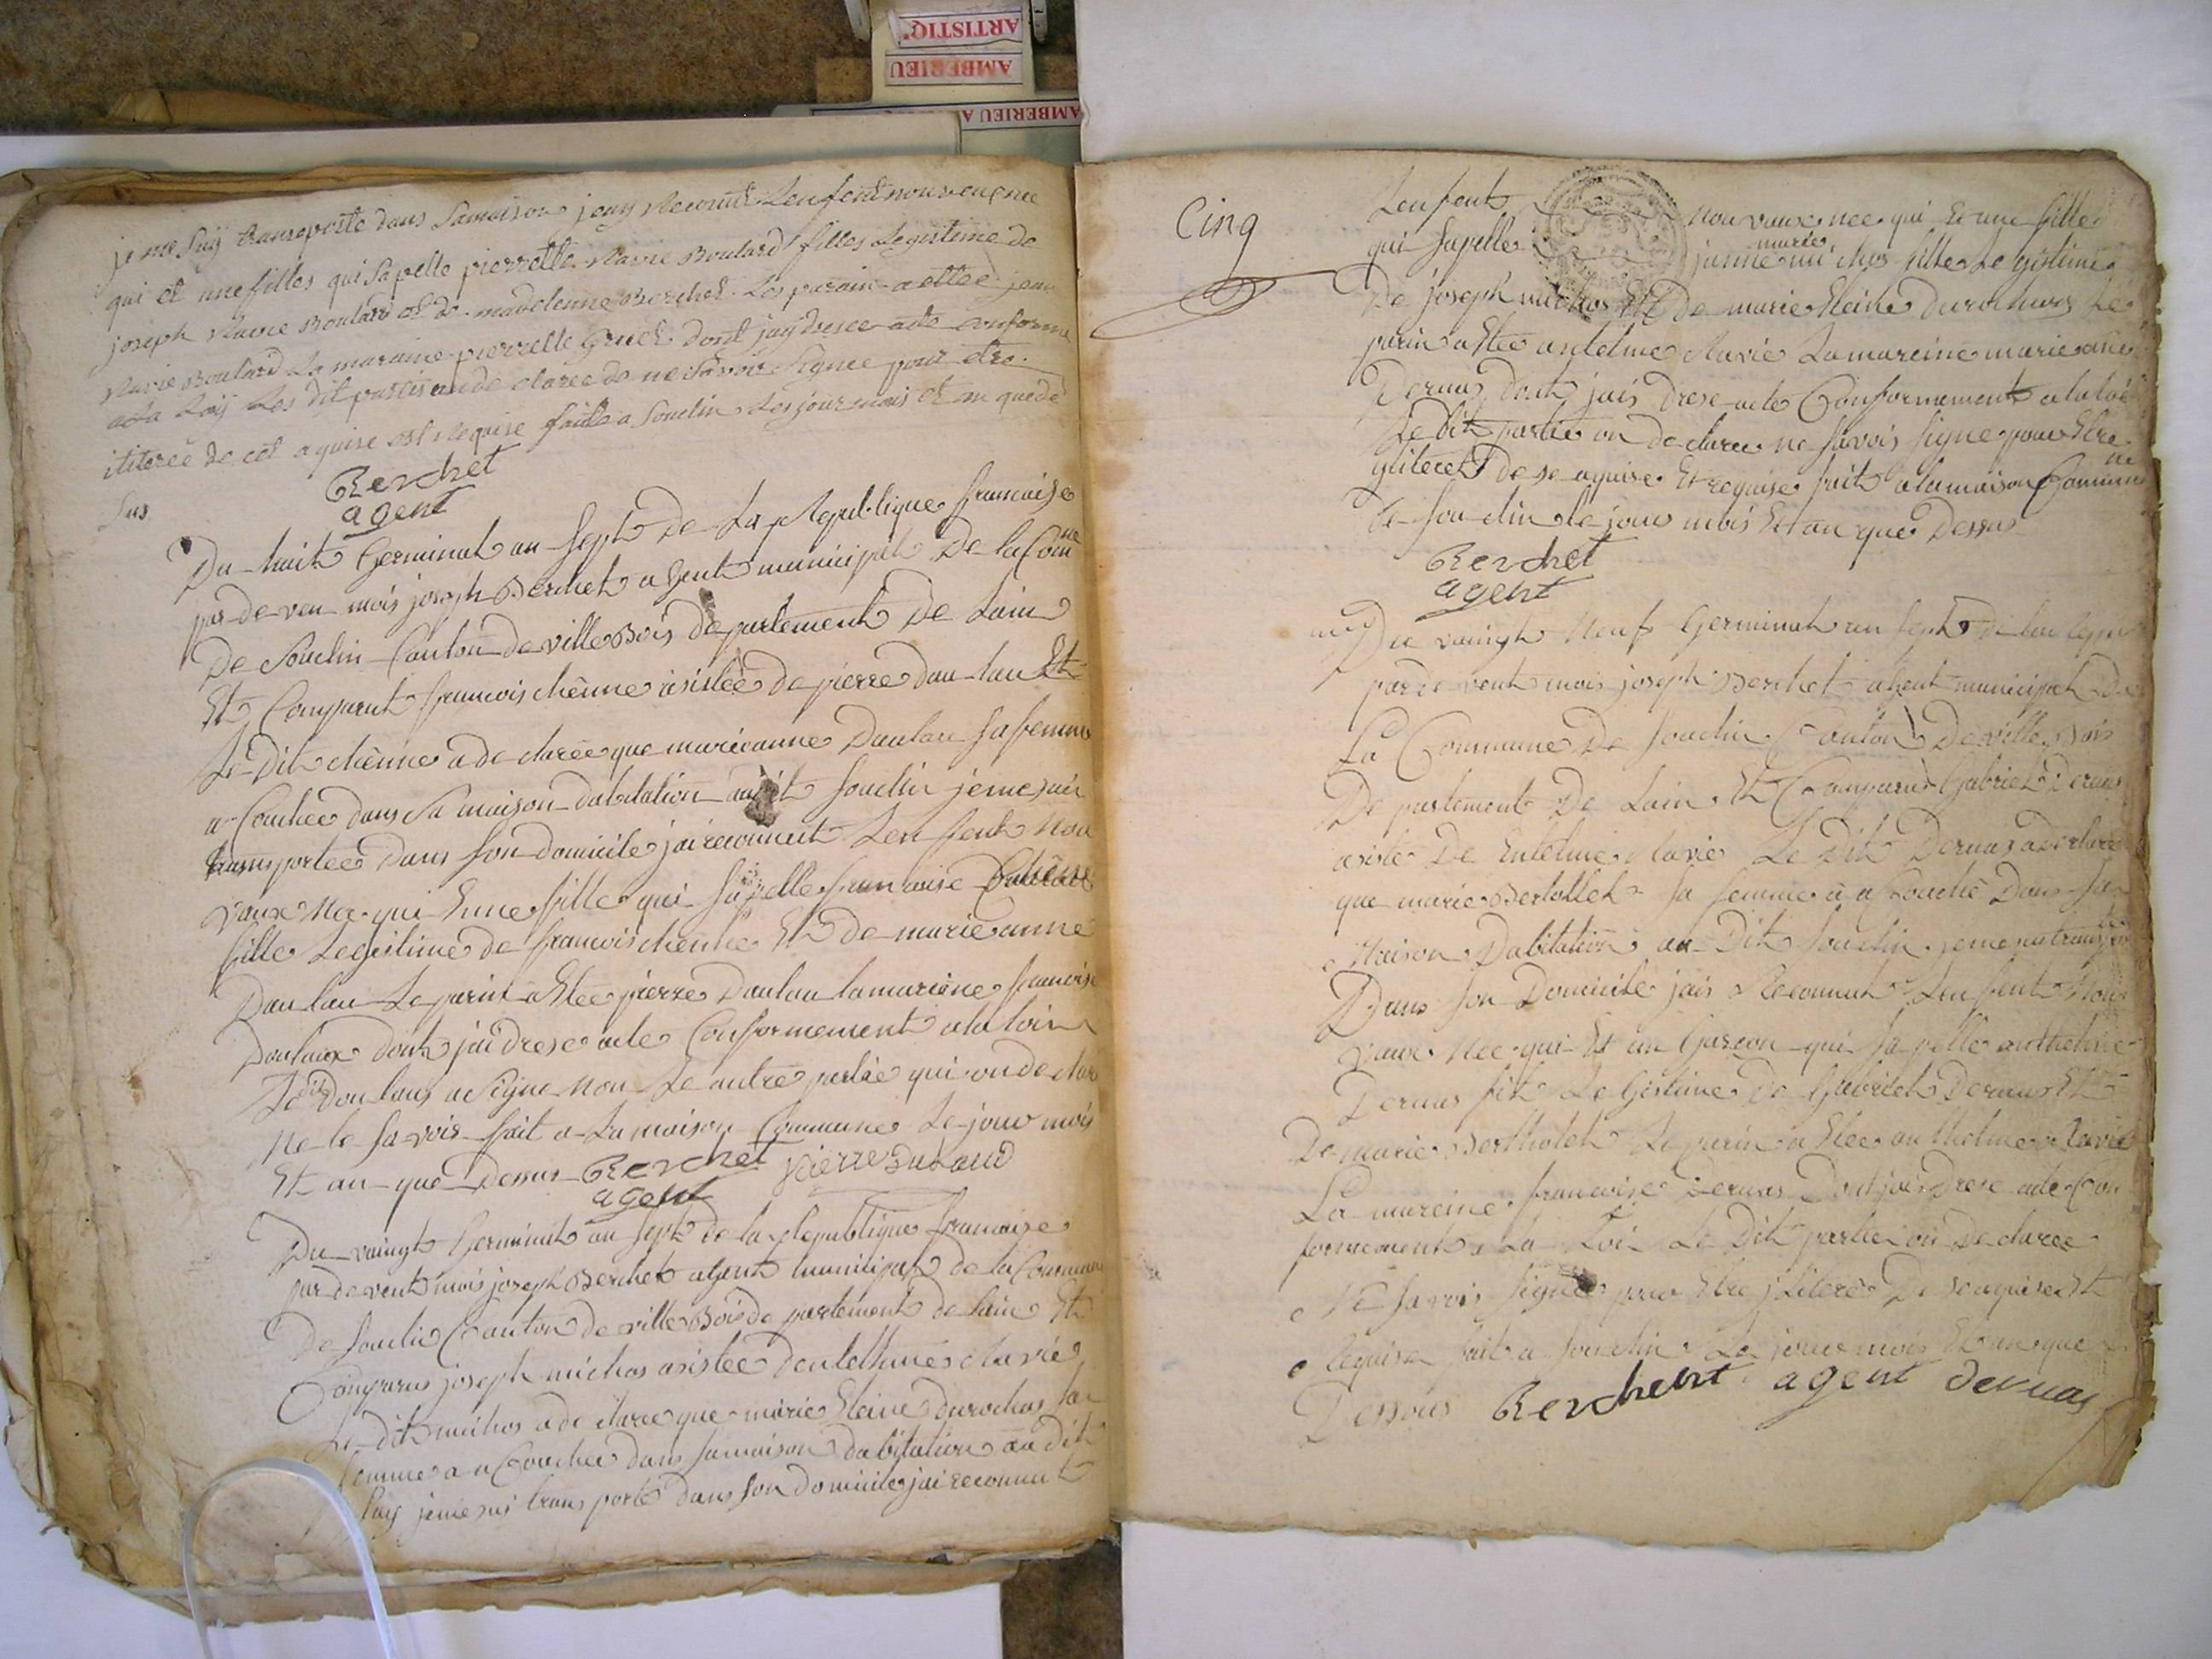 ARTISTIQ'
AMBERIEU
AMBERIEU A
je me suij transeporte dans Samaison jeny Reconut Lenfent nouveuf nee
qui et une filles qui Sapelle pierrette Ravie Boulard filles Legisteme de
joseph Ravie Boulard et de madelenne Berchet Les parain a ettee jean
Ravie Boulard La maraine pierrette Gruel dont jay drese acte conforme
a La Loij Les dit partis on de claree de ne Savoir Signee pour etre
ititeree de cet a quise est Requise faitte a Souclin Les jour mois et an que de
Sus
Berchet
agent
Du huit Germinal an Sept De La Republique francaise
par de ven mois joseph Berchet agent municipal De la Comne
De Souclin Canton de ville Bois departement De Lain
Et Comparut francois chenne asistée de pierre Dau lau Et
Le Dit chênne a de claree que marieanne Daulau Sa femme
a Couchee dans Sa maison dabitation audit Souclin je me sui
transportee Dans Son domicile jai reconnut Lenfent Nou
vaux Nee qui Enne fille qui Sapelle francaise Chêne
fille Legistime de francois chenne Et de marie anne
Daulau Le parin a Etee pierre Daulau la mareine francoise
Daulaux dont jai drese acte Conformement a la loi
Le dit Doulaus a Signe non Le autre partie qui on de clar
Ne le Savoir fait a La maison Commune Le jour mois
Et an que Dessus Berchet pierre Dulaud
agent
Du vaingt Germinal an Sept de la Republique francaise
par de vent mois joseph Berchet agent municipal de la Commune
De Souclin Canton de ville Bois de partement de lain Et
Comparus joseph michos asistee dentelhme Ravie
Le dit michos a de claree que marie Eleine durochas Sa
femme a a Couchee dans Sa maison dabitation au dit
Suij je me sui trans porté dans Son domicile jai reconnut
Cinq
Lenfent nouvaux nee qui Et une fille
qui Sapelle janne marie michos fille Legistime
De joseph michos Et De marie Eleine durochas Le
parin a Etee antelme Ravie La mareine marie ane
Deruas dont jais drese acte Conformement a la loi
Le Dit partie on de claree ne Savois Signe pour Etre
ytiteret De se aquise Et requise fait a la maison Commune
de Souclin le jour mois Et an que Dessus
Berchet
agent
Du vaingt Neuf Germinal an Sept de la Repu
par de vent mois joseph Berchet agent municipal De
La Commune De Souclin Canton De ville Bois
De partement De Lain Et Comparu Gabriel Deruas
asisté De Entelme Ravie Le Dit Deruas a De clare
que marie Bertollet Sa femme a a Couché Dans Sa
Maison Dabitation au Dit Souclin je me sui transporte
Dans Son Domicile jais Reconnut Lenfent Nou
vaux Nee qui Et un Garcon qui Sapelle anthelme
Deruas fit Legistime De Gabriel Deruas Et
De marie Bertholet Le parin a Etee anthelme Ravie
La mareine francoise Deruas Dont jais Drese acte Con
formement a La Loi Le Dit partie on De claree
Ne Savois Signe pour Etre jtiteré De se aquise Et
Requise fait a Souclin Le jour mois Et an que
Dessous Berchent agent deruas